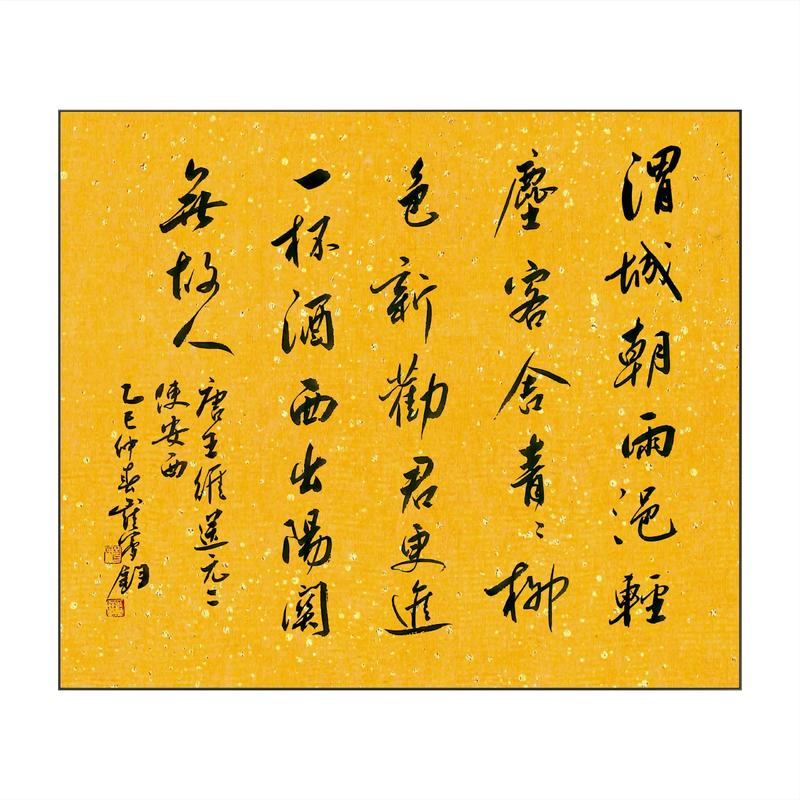 渭城朝雨浥輕
塵客舍青〻柳
色新勸君更進
一杯酒西出陽關
無故人
唐王維送元二
使安西
乙巳仲春